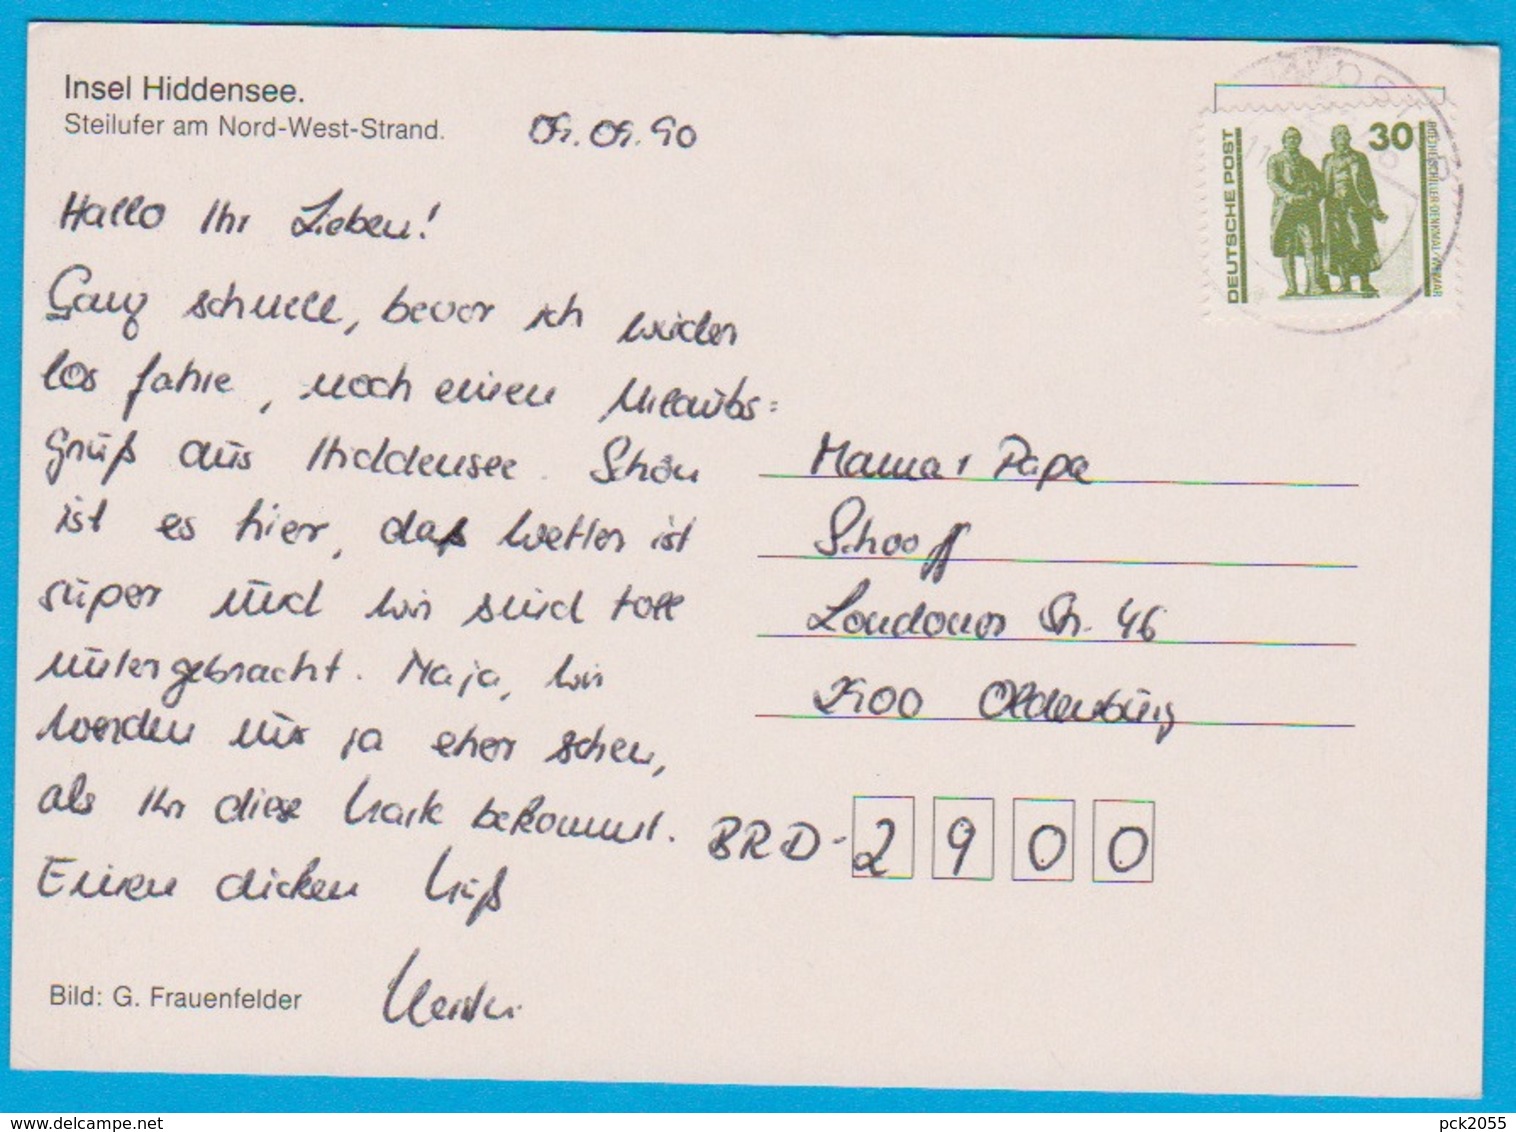 Insel Hiddensee.
Steilufer am Nord-West-Strand.
09.09.90
Hallo Ihr Lieben!
Ganz schnell, bevor ich wieder
los fahre, noch einen Urlaubs=
gruß aus Hiddensee. Schön
ist es hier, daß Wetter ist
super und wir sind toll
untergebracht. Naja, wir
werden uns ja eher sehen,
als Ihr diese Karte bekommt.
Einen dicken Kuß
Bild: G. Frauenfelder
DEUTSCHE POST
30
GOETHE-SCHILLER-DENKMAL/WEIMAR
Mama + Papa
Schooff
Londoner Str. 46
2900 Oldenburg
BRD-2900
pck2055